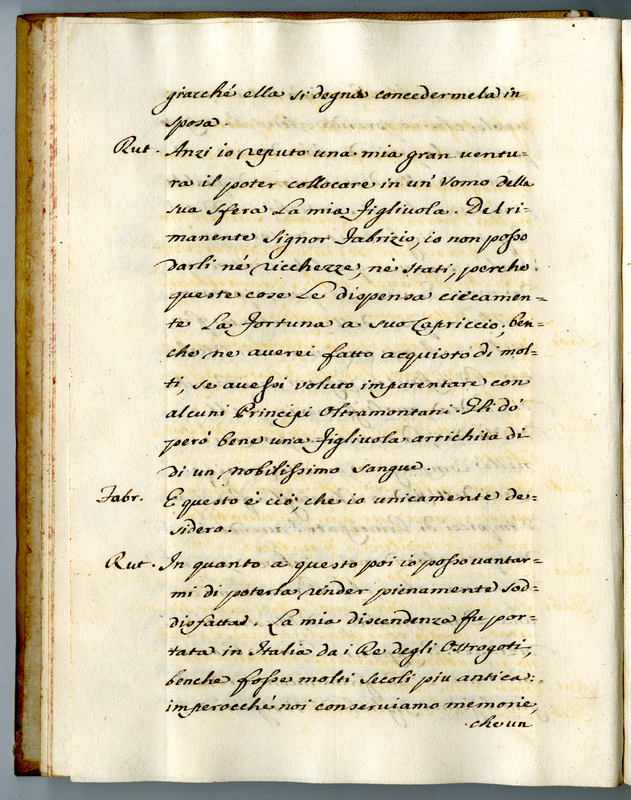 giacché ella si degna concedermela in
sposa.
Rut. Anzi io reputo una mia gran ventu=
ra il poter collocare in un' Vomo della
sua sfera La mia figliuola. Del ri=
manente Signor Fabrizio, io non posso
darli né ricchezze, né stati, perche
queste cose Le dispensa ciecamen=
te La fortuna a suo Capriccio, ben=
che ne averei fatto acquisto di mol=
ti, se avessi voluto imparentare con
alcuni Principi Oltramontani. Gli dó
peró bene una figliuola arrichita di
di un nobilissimo sangue.
Fabr. E questo é ció, che io unicamente de=
sidero.
Rut. In quanto a questo poi io posso vantar=
mi di poterla render pienamente sod=
disfatta. La mia discendenza fu por=
tata in Italia da i Re degli Ostrogoti,
benche fosse molti secoli piu antica:
imperocché noi conserviamo memorie,
che un